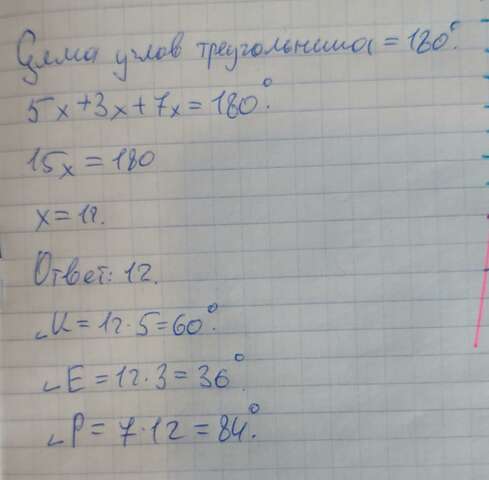 Сума углов треугольника = 180°.
5x+3x+7x=180°.
15x=180
x=12.
Ответ: 12.
∠K=12·5=60°.
∠E=12·3=36°.
∠P=7·12=84°.